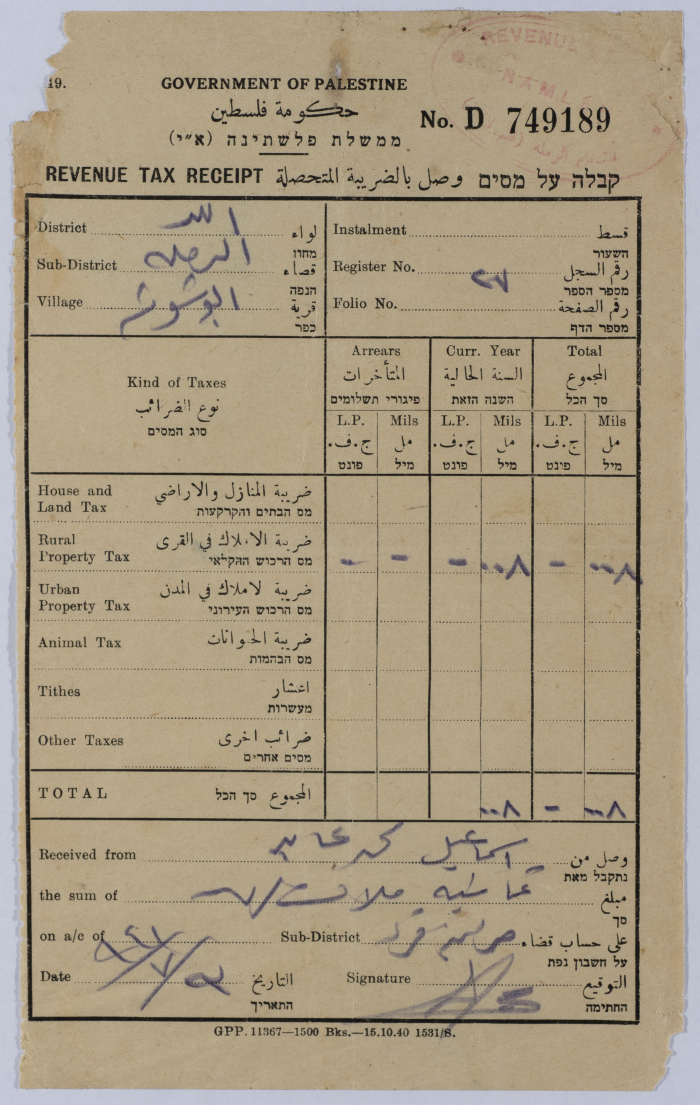 19.
GOVERNMENT OF PALESTINE
حكومة فلسطين
ממשלת פלשתינה (א״י)
No. D 749189
REVENUE
REVENUE TAX RECEIPT وصل بالضريبة المتحصلة קבלה על מסים
District اللد لواء
מחוז
Sub-District الرملة قضاء
הנפה
Village ابو شوشة قرية
כפר
Instalment قسط
השעור
Register No. رقم السجل
מספר הספר
٢٧
Folio No. رقم الصفحة
מספר הדף
Kind of Taxes
نوع الضرائب
סוג המסים
Arrears Curr. Year Total
المتأخرات السنة الحالية المجموع
פיגורי תשלומים השנה הזאת סך הכל
L.P. Mils L.P. Mils L.P. Mils
ج.ف. مل ج.ف. مل ج.ف. مل
פונט מיל פונט מיל פונט מיל
House and Land Tax ضريبة المنازل والاراضي
מס הבתים והקרקעות
Rural Property Tax ضريبة الاملاك في القرى
מס הרכוש החקלאי
- - - ٠٠٨ - ٠٠٨
Urban Property Tax ضريبة لاملاك في المدن
מס הרכוש העירוני
Animal Tax ضريبة الحيوانات
מס הבהמות
Tithes اعشار
מעשרות
Other Taxes ضرائب اخرى
מסים אחרים
TOTAL المجموع סך הכל
٠٠٨ - ٠٠٨
Received from اسماعيل محمد عايد وصل من
נתקבל מאת
the sum of ثمانية ملات مبلغ
סך
on a/c of Sub-District على حساب قضاء
על חשבון נפת
Date التاريخ
התאריך
Signature التوقيع
החתימה
GPP. 11367—1500 Bks.—15.10.40 1531/S.